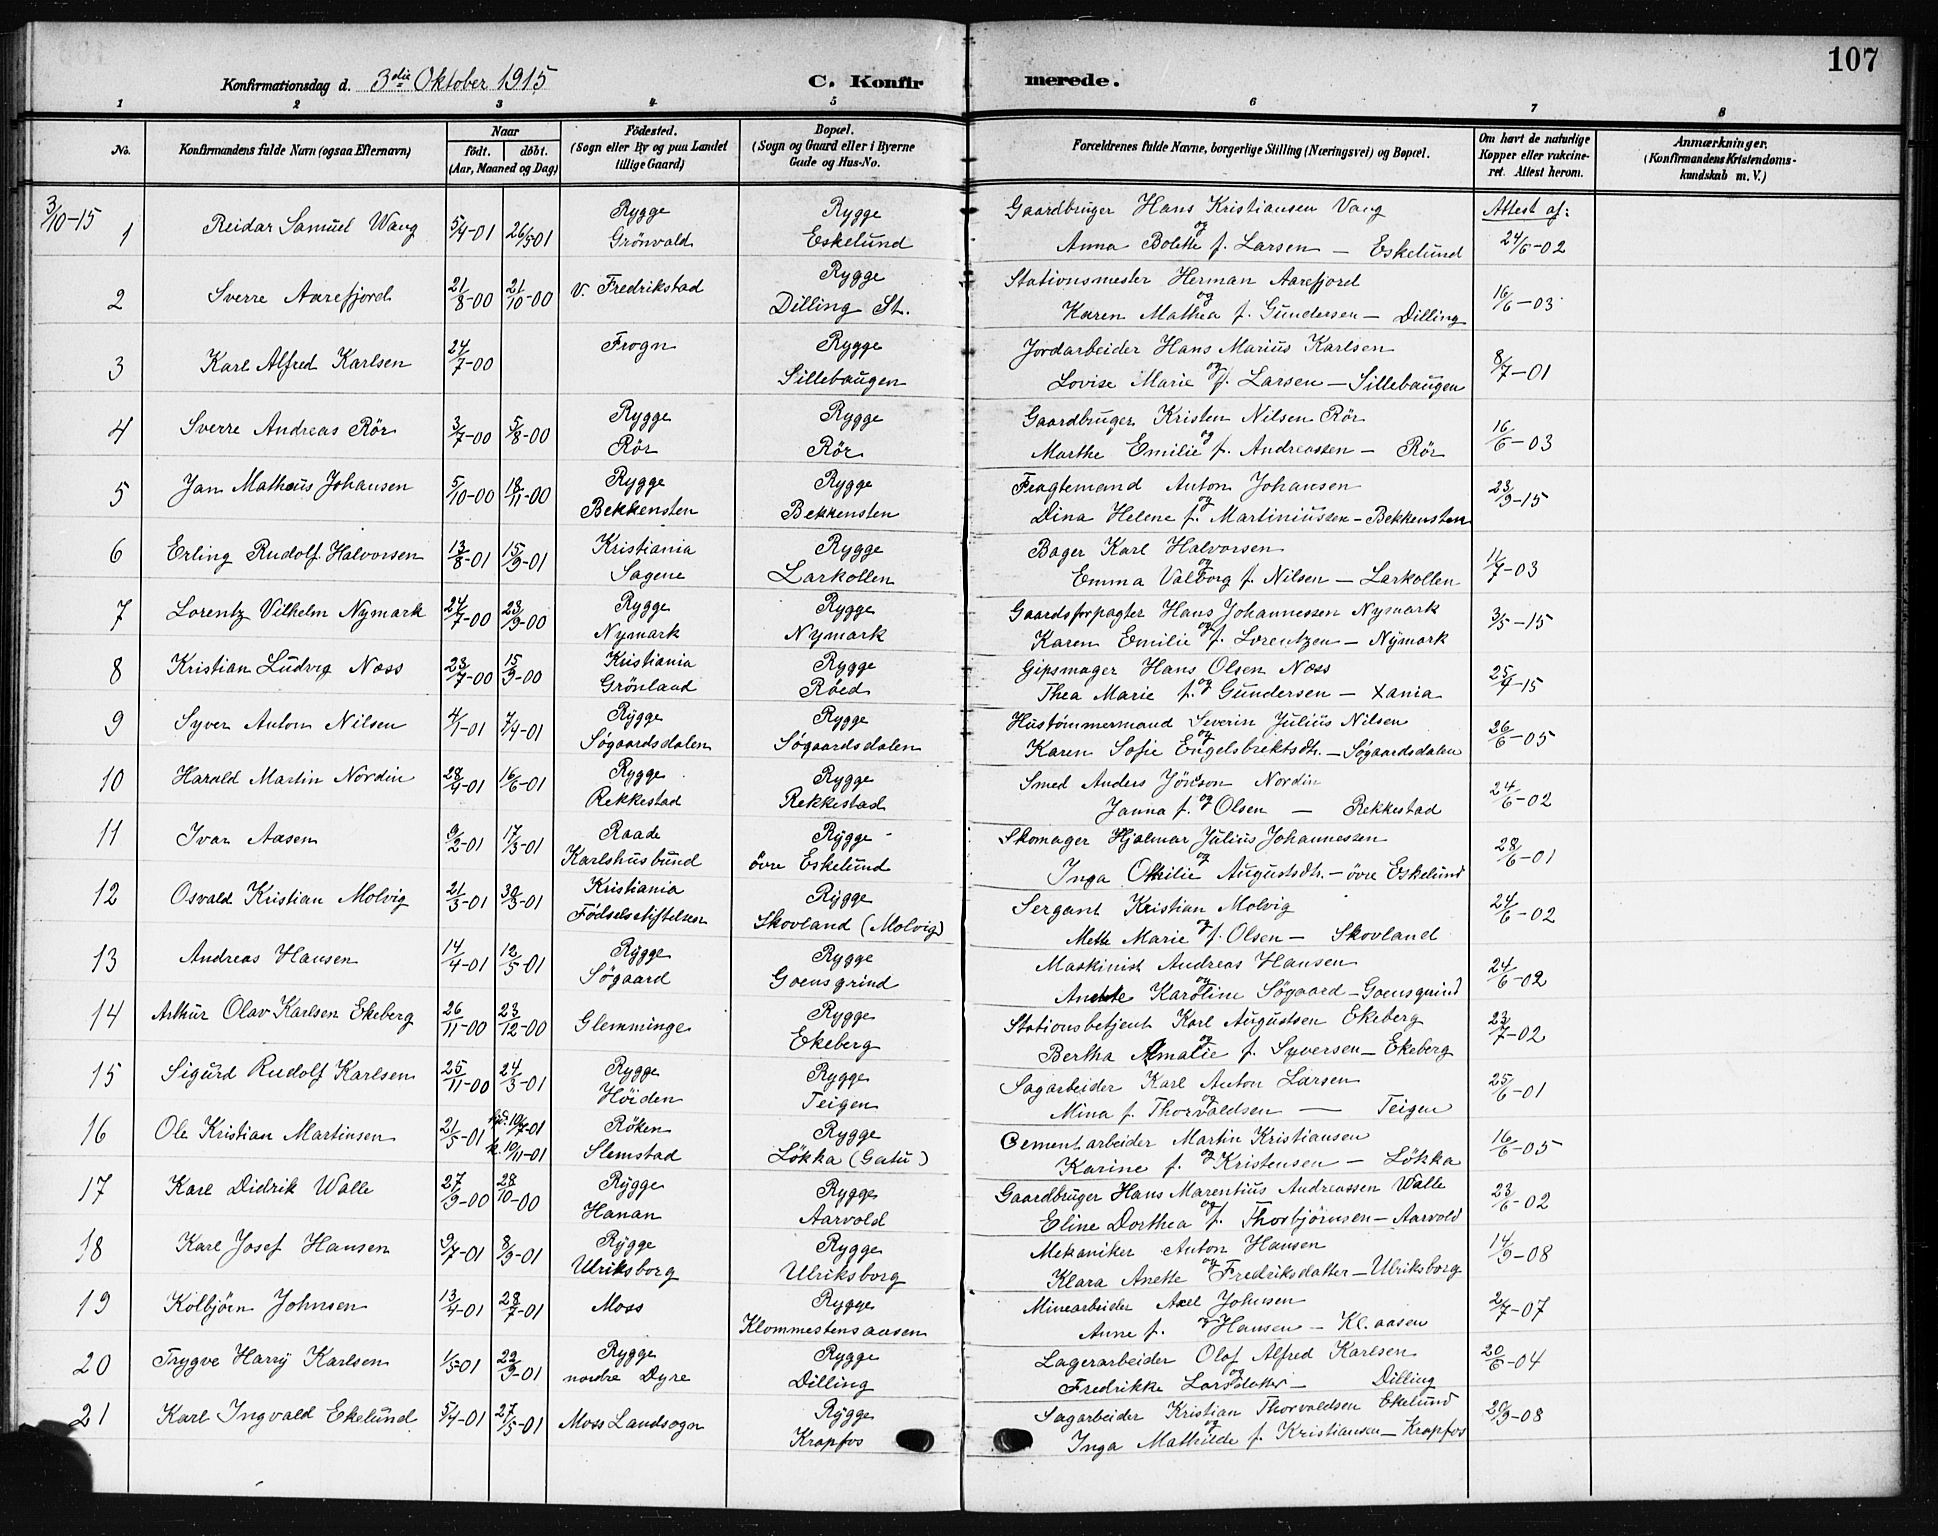 107
Konfirmationsdag d. 3die Oktober 1915 C. Konfirmerede.
1 2 3 4 5 6 7 8
No. Konfirmandens fulde Navn (ogsaa Efternavn) Naar født. døbt. (Aar, Maaned og Dag) Fødested. (Sogn eller By og paa Landet tillige Gaard) Bopæl. (Sogn og Gaard eller i Byerne Gade og Hus-No. Forældrenes fulde Navne, borgerlige Stilling (Næringsvei) og Bopæl. Om havt de naturlige Kopper eller vakcineret. Attest herom. Anmærkninger. (Konfirmandens Kristendomskundskab m. V.)
3/10-15 Rygge Rygge Gaardbruger Hans Kristiansen Vang Attest af:
1 Reidar Samuel Wang 5/4-01 26/5 01 Grönvald Eskelund og Anna Bolette f. Larsen — Eskelund 24/6-02
Rygge Stationsmester Herman Aarefjord
2 Sverre Aarefjord 21/8-00 21/10-00 v. Fredrikstad Dilling St. og Karen Mathea f. Gundersen — Dilling 16/6-03
Frogn Rygge Jordarbeider Hans Marius Karlsen
3 Karl Alfred Karlsen 24/7-00 Sillebaugen og Lovise Marie f. Larsen — Sillebaugen 8/7-01
Rygge Rygge Gaardbruger Kristen Nilsen Rör
4 Sverre Andreas Rör 3/7-00 5/8-00 Rör Rör og Marthe Emilie f. Andreassen — Rör 16/6-03
Rygge Rygge Fragtemand Anton Johansen
5 Jan Mathæus Johansen 5/10-00 18/11-00 Bekkensten Bekkensten og Dina Helene f. Martiniussen — Bekkensten 23/9-15
Kristiania Rygge Bager Karl Halvorsen
6 Erling Rudolf Halvorsen 13/8-01 15/9-01 Sagene Larkollen og Emma Valborg f. Nilsen — Larkollen 11/7-03
Rygge Rygge Gaardsforpagter Hans Johannessen Nymark
7 Lorentz Vilhelm Nymark 24/7-00 23/9-00 Nymark Nymark og Karen Emilie f. Lorentzen — Nymark 3/5-15
Kristiania Rygge Gipsmager Hans Olsen Næss
8 Kristian Ludvig Næss 23/7-00 15/9-00 Grönland Röed og Thea Marie f. Gundersen — Xania 25/4-15
Rygge Rygge Hustömmermand Severin Julius Nilsen
9 Syver Anton Nilsen 4/1-01 7/4-01 Søgaardsdalen Søgaardsdalen og Karen Sofie Engelsbrektsdtr. — Søgaardsdalen 26/6-05
Rygge Rygge Smed Anders Jönson Nordin
10 Harald Martin Nordin 28/4-01 16/6-01 Rekkestad Rekkestad og Janna f. Olsen — Rekkestad 24/6-02
Raade Rygge Skomager Hjalmar Julius Johannessen
11 Ivar Aasen 9/2-01 17/3-01 Karlshusbund övre Eskelund og Inga Otilie Augustsdtr. — övre Eskelund 28/6-01
Kristiania Rygge Sergant Kristian Molvig
12 Osvald Kristian Molvig 21/3-01 30/3-01 Födselsstiftelsen Skovland (Molvig) og Mette Marie f. Olsen — Skovland 24/6-02
Rygge Rygge Maskinist Andreas Hansen
13 Andreas Hansen 14/4-01 12/5-01 Søgaard Goensgrind og Anette Karoline Søgaard — Goensgrind 24/6-02
Rygge Stationsbetjent Karl Augustsen Ekeberg
14 Arthur Olav Karlsen Ekeberg 26/11-00 23/12-00 Glemminge Ekeberg og Bertha Amalie f. Syversen — Ekeberg 23/7-02
Rygge Rygge Sagarbeider Karl Anton Larsen
15 Sigurd Rudolf Karlsen 25/11-00 24/3-01 Höiden Teigen og Mina f. Thorvaldsen — Teigen 25/6-01
Röken Rygge Cementarbeider Martin Kristiansen
16 Ole Kristian Martinsen 21/5-01 k. 10/11-01 Slemstad Løkka (Gatu) og Karine f. Kristensen — Løkka 16/6-05
Rygge Rygge Gaardbruger Hans Marentius Andreassen Walle
17 Karl Didrik Walle 27/9-00 28/10-00 Hanan Aarvold og Eline Dorthea f. Thorbjörnsen — Aarvold 23/6-02
Rygge Rygge Mekaniker Anton Hansen
18 Karl Josef Hansen 9/7-01 8/9-01 Ulriksborg Ulriksborg og Klara Anette Fredriksdatter — Ulriksborg 14/9-08
Rygge Minearbeider Axel Johnsen
19 Kolbjörn Johnsen 13/4-01 28/7-01 Moss Klommestensaasen og Anne f. Hansen — Kl.aasen 2/7-07
Rygge Rygge Lagerarbeider Olof Alfred Karlsen
20 Trygve Harry Karlsen 1/5-01 22/9-01 nordre Dyre Dilling og Fredrikke Larsdatter — Dilling 20/6-04
Rygge Sagarbeider Kristian Thorvaldsen Ekelund
21 Karl Ingvald Ekelund 5/4-01 27/5-01 Moss Landsogn Krapfos og Inga Mathilde f. Kristiansen — Krapfos 20/9-08